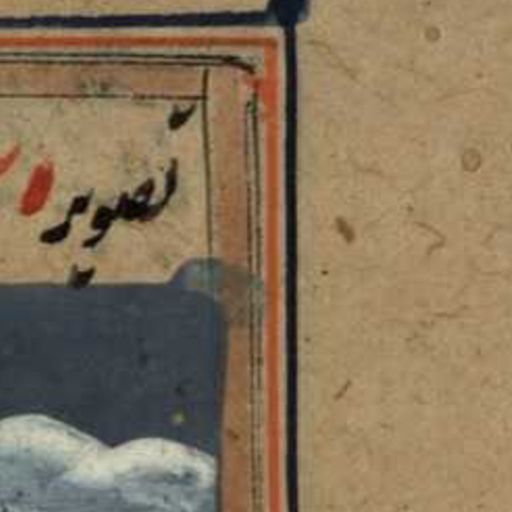 تصویر